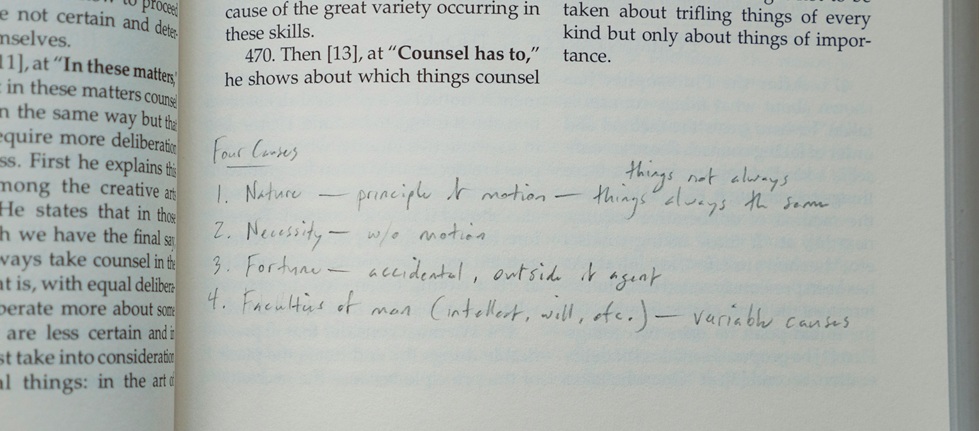 to proceed
e not certain and deter-
nselves.
11], at “In these matters,”
in these matters counsel
n the same way but tha
equire more deliberation
ss. First he explains this
mong the creative arts
He states that in those
h we have the final say
ways take counsel in the
at is, with equal delibera
perate more about some
are less certain and in
st take into consideration
al things: in the art o
cause of the great variety occurring in
these skills.
470. Then [13], at “Counsel has to,”
he shows about which things counsel
taken about trifling things of every
kind but only about things of impor-
tance.
Four Causes
things not always
1. Nature — principle of motion — things always the same
2. Necessity — w/o motion
3. Fortune — accidental, outside of agent
4. Faculties of man (intellect, will, etc.) — variable causes